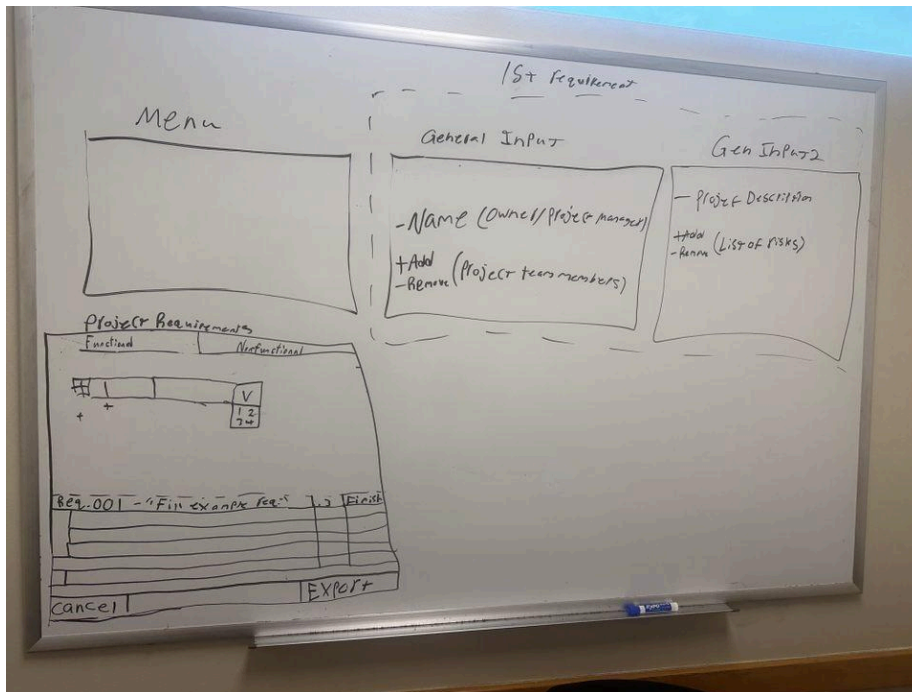 1st requirement
Menu
General Input
- Name (Owner/Project manager)
+ Add
- Remove (Project team members)
Gen Input 2
- Project Description
+ Add
- Remove (List of risks)
Project Requirements
Functional
Nonfunctional
+
+
+
V
1 2
3 4
Req.001 - "Fill example req"
Finish
Cancel
Export